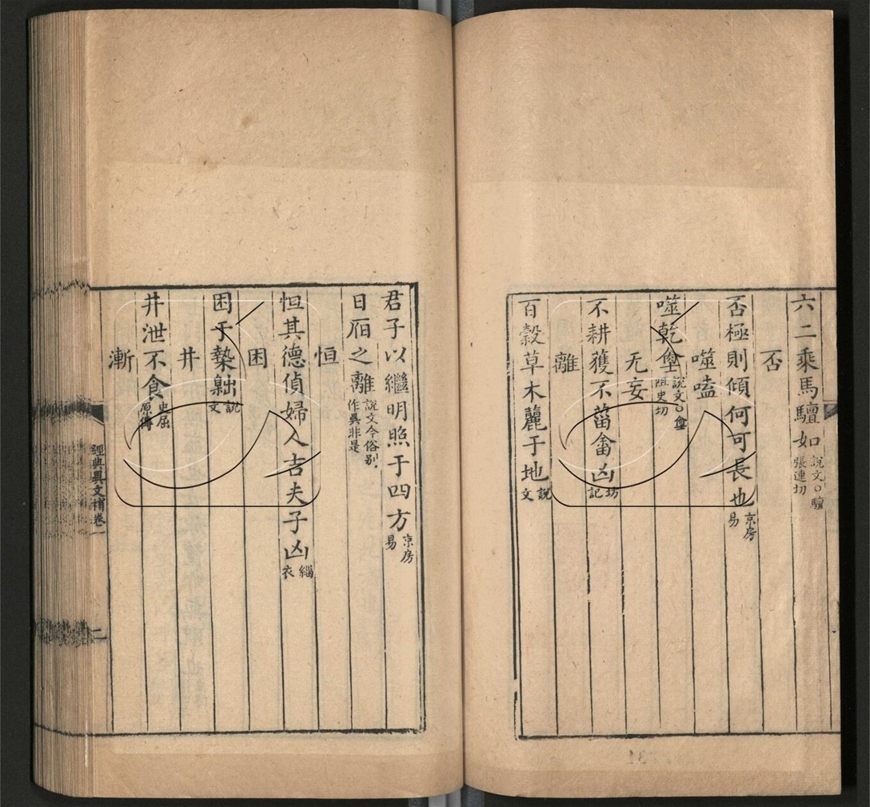 六二乘馬驙如說文○驙張連切
否
否極則傾何可長也京房易
噬嗑
噬乾
无妄
不耕穫不菑畬凶坊記
離
百穀草木麗于地說文
君子以繼明照于四方京房易
日之離說文今俗別作是
恒
恒其德偵婦人吉夫子凶緇衣
困
困于說文
井
井泄不食史屈原傳
漸
經典異文補卷一
二